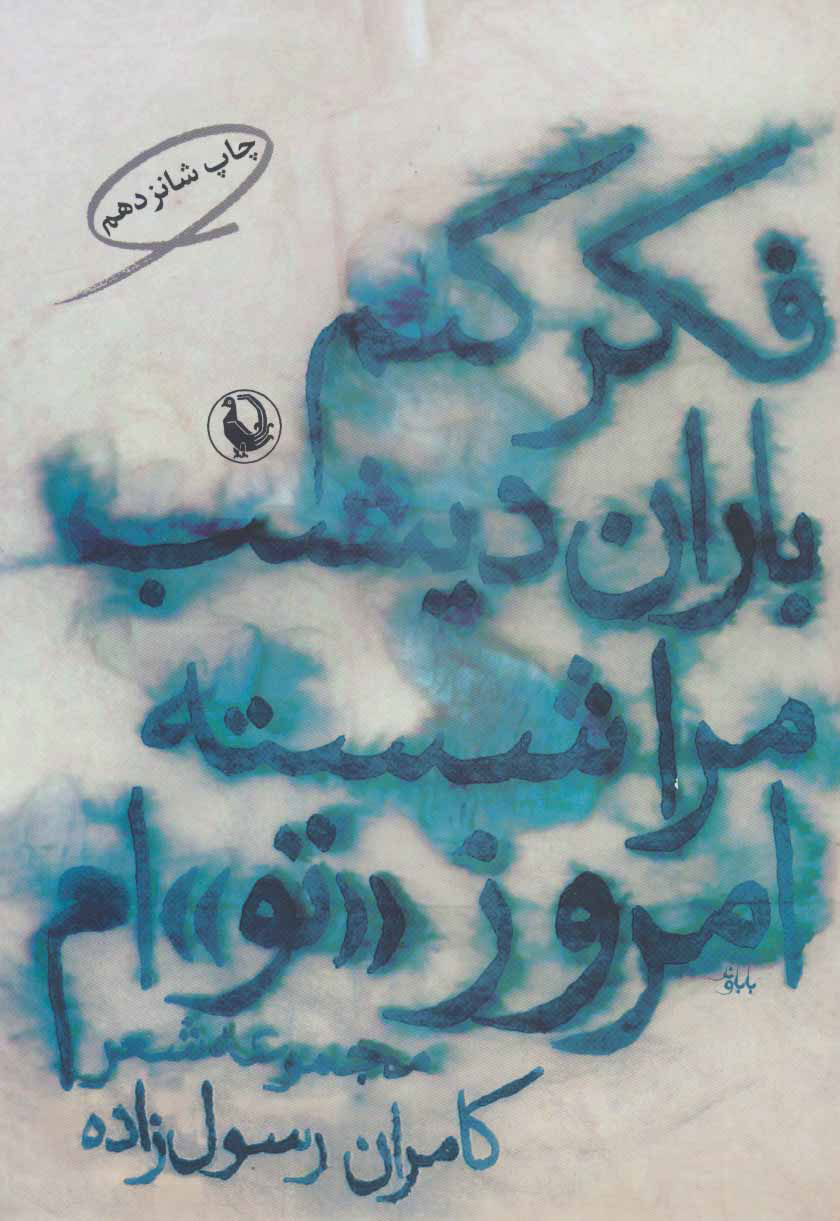 چاپ شانزدهم
فکر کنم
باران دیشب
مرا شسته
امروز «تو» ام
باباوند
مجموعه شعر
کامران رسول‌زاده